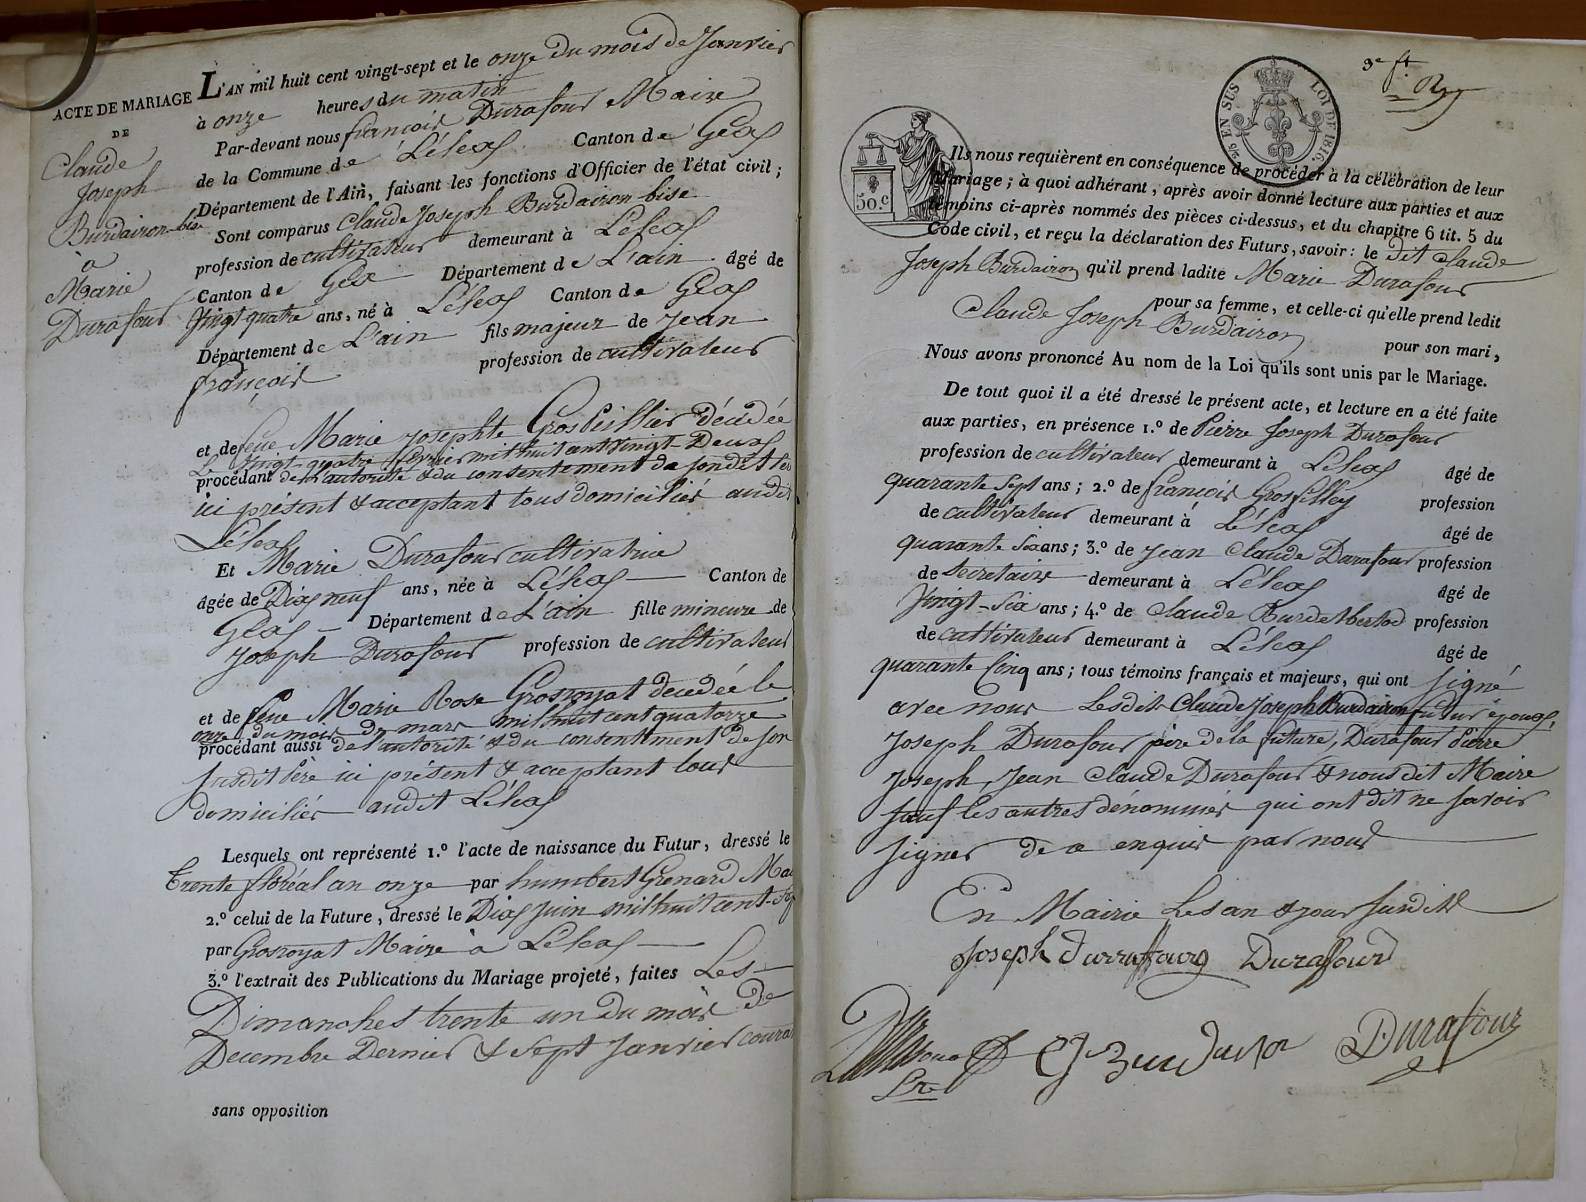 ACTE DE MARIAGE
DE
Claude
Joseph
Burdairon-bise
à
Marie
Durafour
L'AN mil huit cent vingt-sept et le onze du mois de Janvier
à onze heures du matin
Par-devant nous françois Durafour Maire
de la Commune de Léleax Canton de Geax
Département de l'Ain, faisant les fonctions d'Officier de l'état civil ;
Sont comparus Claude Joseph Burdairon-bise
profession de cultivateur demeurant à Léleax
Canton de Gex Département de L'ain âgé de
Vingt quatre ans, né à Léleax Canton de Geax
Département de L'ain fils majeur de Jean
françois profession de cultivateur
et de feue Marie Josephte Grospeillier décédée
Le Vingt-quatre février mil huit cent Vingt-Deux
procédant de l'autorité & du consentement de son dit
ici présent & acceptant tous domiciliés audit
Léleax
Et Marie Durafour cultivatrice
âgée de Dix neuf ans, née à Léleax Canton de
Geax Département de L'ain fille mineure de
Joseph Durafour profession de cultivateur
et de feue Marie Rose Grosroyat décédée le
onze du mois de mars mil huit cent quatorze
procédant aussi de l'autorité & du consentement de son
susdit père ici présent & acceptant tous
domiciliés audit Léleax
Lesquels ont représenté 1.º l'acte de naissance du Futur, dressé le
trente floréal an onze par humbert Grenard
2.º celui de la Future, dressé le Dix Juin mil huit cent
par Grosroyat Maire à Léleax
3.º l'extrait des Publications du Mariage projeté, faites Les
Dimanches trente un du mois de
Decembre Dernier & Sept Janvier
sans opposition
3e ft
EN SUS
LOI DE 1816.
50.c
Ils nous requièrent en conséquence de procéder à la célébration de leur
mariage ; à quoi adhérant, après avoir donné lecture aux parties et aux
témoins ci-après nommés des pièces ci-dessus, et du chapitre 6 tit. 5 du
Code civil, et reçu la déclaration des Futurs, savoir : le dit Claude
Joseph Burdairon qu'il prend ladite Marie Durafour
pour sa femme, et celle-ci qu'elle prend ledit
Claude Joseph Burdairon pour son mari,
Nous avons prononcé Au nom de la Loi qu'ils sont unis par le Mariage.
De tout quoi il a été dressé le présent acte, et lecture en a été faite
aux parties, en présence 1.º de Pierre Joseph Durafour
profession de cultivateur demeurant à Léleax âgé de
quarante Sept ans ; 2.º de françois Grosfilley profession
de cultivateur demeurant à Léleax âgé de
quarante Six ans ; 3.º de Jean Claude Durafour profession
de Secretaire demeurant à Léleax âgé de
Vingt-Six ans ; 4.º de Claude profession
de cultivateur demeurant à Léleax âgé de
quarante Cinq ans ; tous témoins français et majeurs, qui ont signé
avec nous Lesdits Claude Joseph Burdairon futur époux,
Joseph Durafour père de la future, Durafour Pierre
Joseph, Jean Claude Durafour & nous dit Maire
sauf les autres dénommés qui ont dit ne savoir
signer de ce enquis par nous
En Mairie Les an & jour susdits
Joseph Durraffourg Duraffourd
Durafour